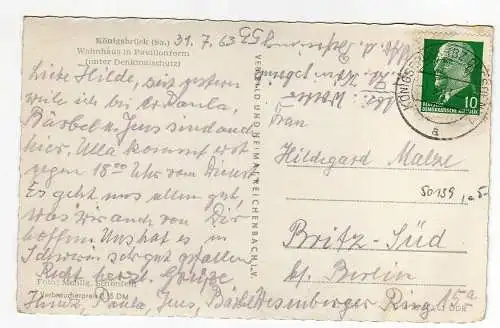 Königsbrück (Sa.)
Wohnhaus in Pavillonform
(unter Denkmalschutz)
31. 7. 63
Liebe Hilde, seit gestern
weile ich bei Paula,
Bärbel u. Jens sind auch
hier. Ulla kommt erst
gegen 18°° Uhr vom Dienst
Es geht uns allen gut,
was wir auch von Dir
hoffen. Uns hat es in
sehr gut gefallen
Recht herzl. Grüße
Foto: Mehlig, Schönfeld
Verbraucherpreis DM
Paula, Jens, Bärbel
VERLAG BILD UND HEIMAT REICHENBACH I. V.
KÖNIGSBRÜCK
a
10
DEUTSCHE
DEMOKRATISCHE REPUBLIK
Frau
Hildegard Malze
50139
Britz-Süd
b/. Berlin
Wesenberger Ring 15a